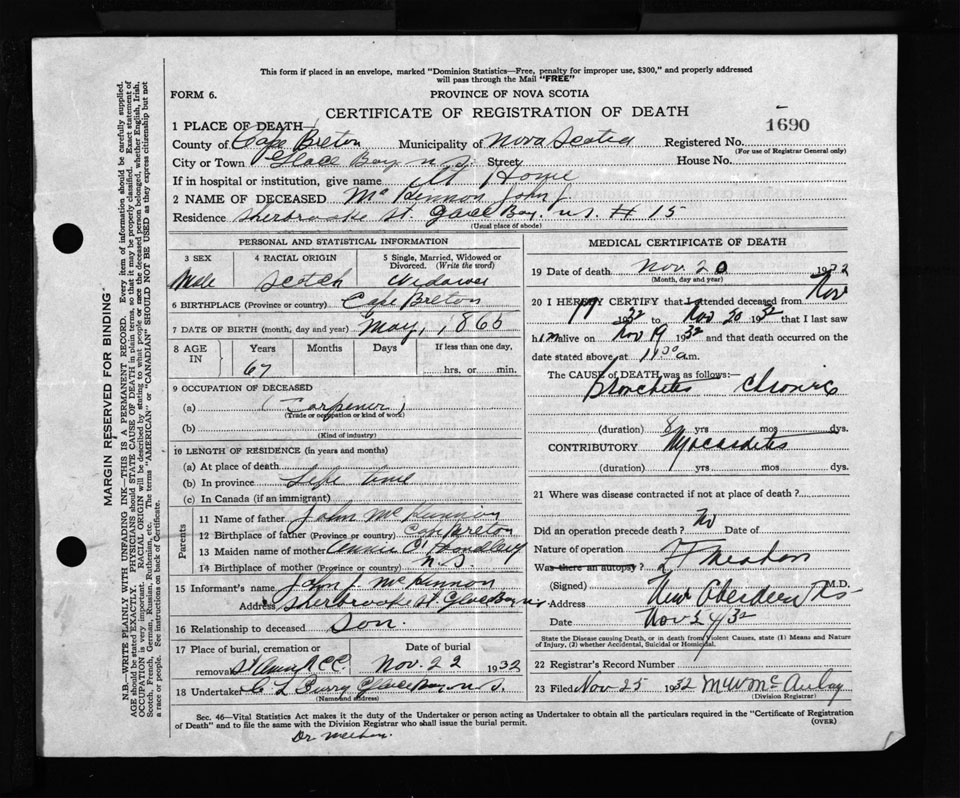 This form if placed in an envelope, marked "Dominion Statistics—Free, penalty for improper use, $300," and properly addressed
will pass through the Mail "FREE"
FORM 6.
PROVINCE OF NOVA SCOTIA
CERTIFICATE OF REGISTRATION OF DEATH
1690
1 PLACE OF DEATH
County of Cape Breton Municipality of Nova Scotia Registered No.
(For use of Registrar General only)
City or Town Glace Bay N S Street House No.
If in hospital or institution, give name At Home
2 NAME OF DECEASED McKennon John J
Residence Sherbrooke St. Glace Bay. N.S. # 15
(Usual place of abode)
PERSONAL AND STATISTICAL INFORMATION
3 SEX 4 RACIAL ORIGIN 5 Single, Married, Widowed or Divorced. (Write the word)
Male Scotch Widower
6 BIRTHPLACE (Province or country) Cape Breton
7 DATE OF BIRTH (month, day and year) May, 1865
8 AGE IN Years Months Days If less than one day,
67 hrs. or min.
9 OCCUPATION OF DECEASED
(a) (Carpener)
(Trade or occupation or kind of work)
(b)
(Kind of industry)
10 LENGTH OF RESIDENCE (in years and months)
(a) At place of death
(b) In province Life time
(c) In Canada (if an immigrant)
Parents
11 Name of father John McKennon
12 Birthplace of father (Province or country) Cape Breton
13 Maiden name of mother Annie
14 Birthplace of mother (Province or country) N S
15 Informant's name John J. McKennon
Address Sherbrooke St Glace Bay NS
16 Relationship to deceased Son.
17 Place of burial, cremation or Date of burial
removal St Anns R C C. Nov. 22 1932
18 Undertaker C L Curry Glace Bay N.S.
(Name and address)
MEDICAL CERTIFICATE OF DEATH
19 Date of death Nov 20 1932
(Month, day and year)
20 I HEREBY CERTIFY that I attended deceased from Nov
19 1932 to Nov 20 1932 that I last saw
him alive on Nov 19 1932 and that death occurred on the
date stated above at 11 00 a.m.
The CAUSE OF DEATH was as follows:—
Bronchitis Chronic
(duration) 8 yrs mos dys.
CONTRIBUTORY Myocarditis
(duration) yrs mos. dys.
21 Where was disease contracted if not at place of death?
Did an operation precede death? No Date of
Nature of operation
Was there an autopsy?
(Signed) Meehan M.D.
Address New Aberdeen NS
Date Nov 24/32
State the Disease causing Death, or in death from Violent Causes, state (1) Means and Nature
of Injury, (2) whether Accidental, Suicidal or Homicidal.
22 Registrar's Record Number
23 Filed Nov 25 1932 M W McAulay
(Division Registrar)
Sec. 46—Vital Statistics Act makes it the duty of the Undertaker or person acting as Undertaker to obtain all the particulars required in the "Certificate of Registration
of Death" and to file the same with the Division Registrar who shall issue the burial permit.
(OVER)
Dr Meehan.
MARGIN RESERVED FOR BINDING
N.B.—WRITE PLAINLY WITH UNFADING INK—THIS IS A PERMANENT RECORD. Every item of information should be carefully supplied.
AGE should be stated EXACTLY. PHYSICIANS should STATE CAUSE OF DEATH in plain terms, so that it may be properly classified. Exact statement of
OCCUPATION is very important. RACIAL ORIGIN will be described by stating to what people or race the deceased person belonged, whether English, Irish,
Scotch, French, German, Russian, Ruthenian, etc. The terms "AMERICAN" or "CANADIAN" SHOULD NOT BE USED as they express citizenship but not
a race or people. See instructions on back of Certificate.